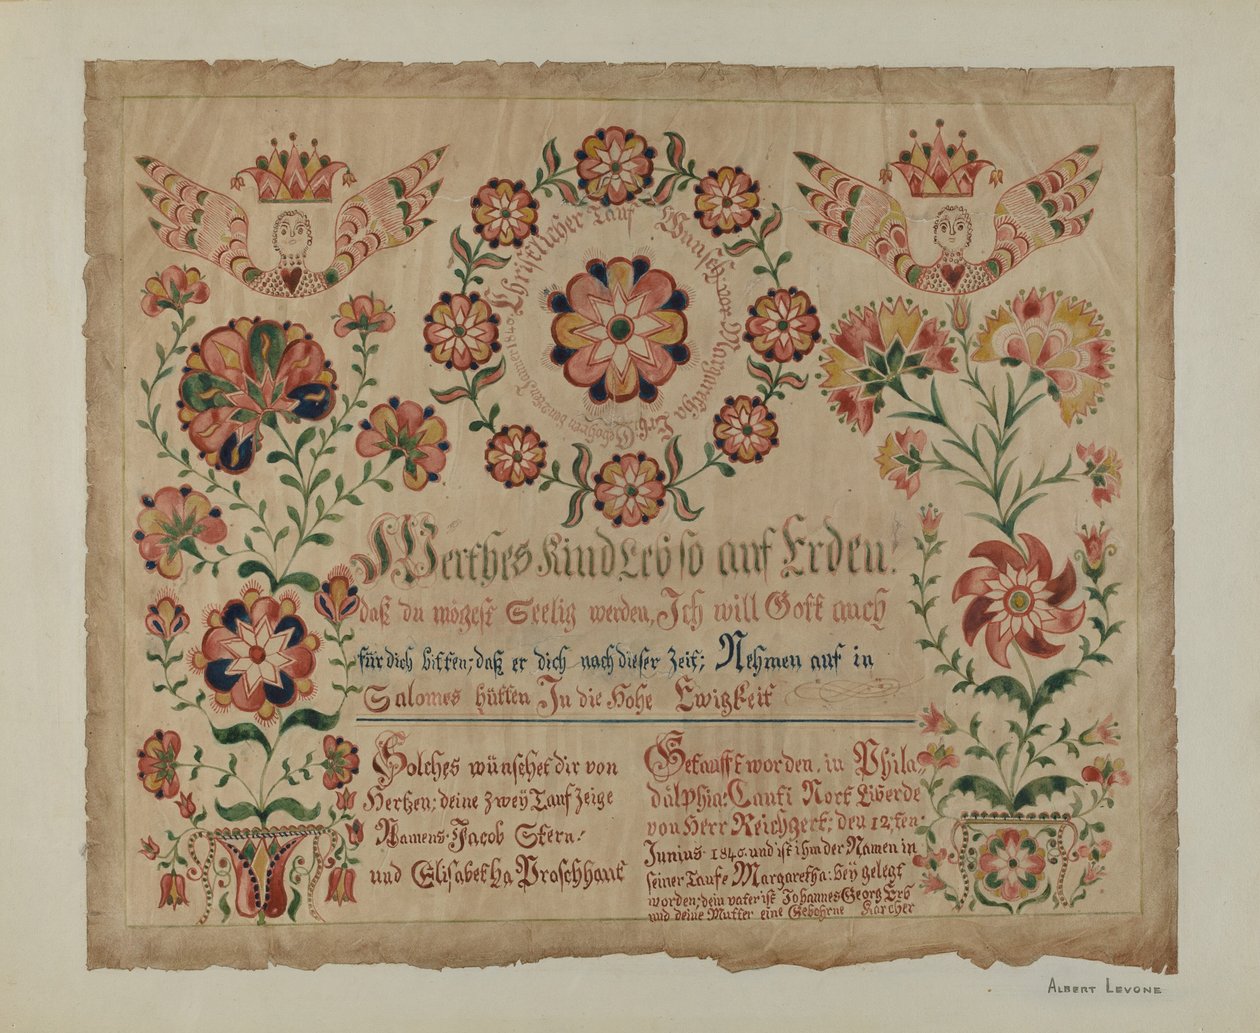 Christlicher Tauf Wunsch, vor Margaretha Erb, Gebohren den 2ten Janner 1840.
Werthes Kind Leb so auf Erden!
daß du mögest Seelig werden, Ich will Gott auch
für dich bitten; daß er dich nach dieser Zeit; Nehmen auf in
Salomes hütten In die Hohe Ewigkeit
Solches wünschet dir von
Hertzen; deine zweÿ Tauf Zeige
Namens Jacob Stern!
und Elisabetha Proschhaut
Getaufft worden, in Phila-
dälphia: Caufi Nort Liberde
von Herr Reichgert; den 12,ten
Junius 1840. und ist ihm der Namen in
seiner Taufe Margaretha: beÿ gelegt
worden; dein vater ist Johannes Georg Erb
und deine Mutter eine Gebohrne Karcher
ALBERT LEVONE